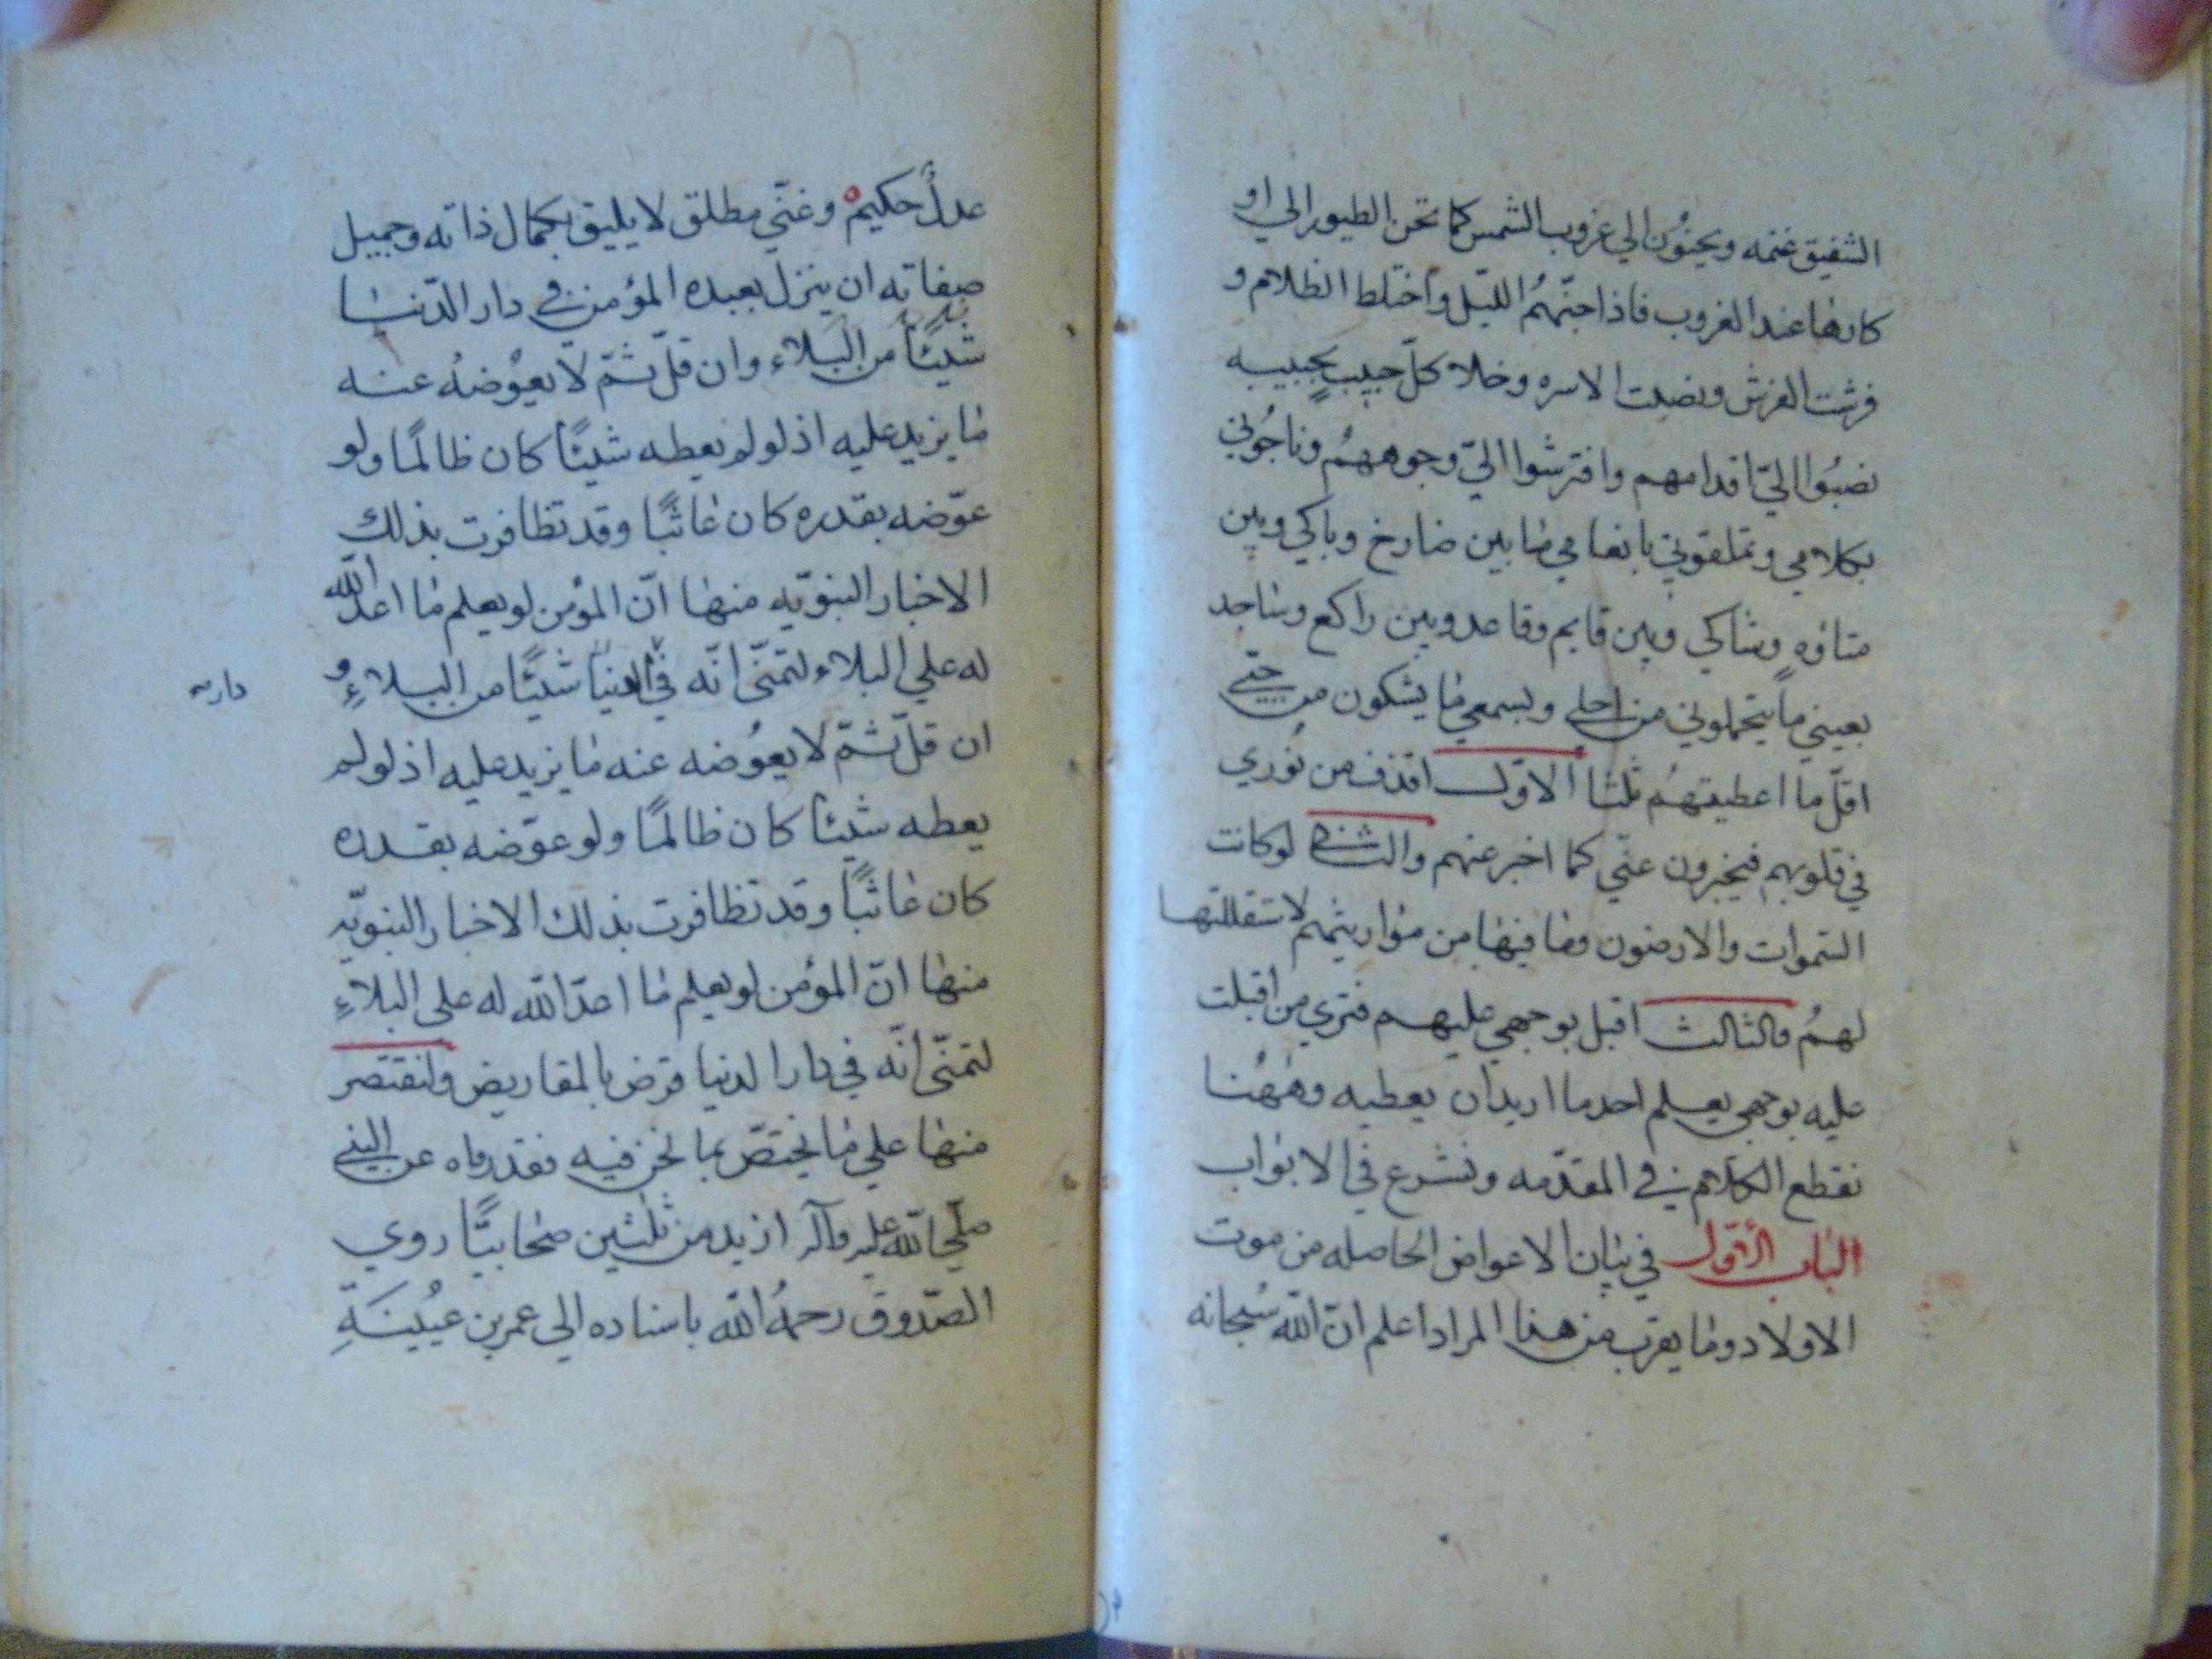 الشفيق غنمه ويحنون الي غروب الشمس كما تحن الطيور الي او
كارها عند الغروب فاذا جنّهمُ الليّل واختلط الظلام و
فرشت الفرش ونصبت الاسره وخلا كلّ حبيبٍ بحبيبه
نصبُوا اليّ اقدامهم وافترشوا اليّ وجوههمُ وناجُوني
بكلامي وتملقوني بانعامي مابين صارخ وباكي وبين
متاوّه وشاكي وبين قايم وقاعد وبين راكع وساجد
بعيني ما يتحملوني من اجلي وبسمعي ما يشكون من حبّي
اقلّ ما اعطيتهمُ ثلثا الاوّل اقذف من نُوري
في قلوبهم فيخبرون عنّي كما اخبر عنهم والثاني لوكانت
السّموات والارضون وما فيها من مواريثهم لاستقللتها
لهمُ والثالث اقبل بوجهي عليهم فتري من اقبلت
عليه بوجهي يعلم احد ما اريد ان يعطيه وههُنا
نقطع الكلام في المقدّمه ونشرع في الابواب
الباب الأوّل في بيان الاعواض الحاصله من موت
الاولاد وما يقرب من هذا المراد اعلم انّ الله سُبحانه
عدلٌ حكيم وغنّي مطلق لا يليق بكمال ذاته وجميل
صفاته ان ينزل بعبده المؤمن في دار الدّنيا
شيئًا من البَلاء وان قلّ ثمّ لا يعوّضهُ عنه
ما يزيد عليه اذ لو لم يعطه شيئًا كان ظالمًا ولو
عوّضه بقدره كان عابثًا وقد تظافرت بذلك
الاخبار النبوّيه منها انّ المؤمن لو يعلم ما اعدّ الله
له علي البلاء لتمنّي انّه في الدنيا شيئًا من البلاءِ و
دار
ان قلّ ثمّ لا يعوُضه عنه ما يزيد عليه اذ لو لم
يعطه شيئًا كان ظالمًا ولو عوّضه بقدره
كان عابثًا وقد تظافرت بذلك الاخبار النبويّه
منها انّ المؤمن لو يعلم ما اعدّ الله له علي البلاءِ
لتمنّي انّه في دار الدنيا قرض بالمقاريض ولنقتصر
منها علي ما يختصّ بما نحن فيه فقد رواه عن النبي
صلّي الله عليه وآله ازيد من ثلثين صحابيًّا روي
الصّدوق رحمهُ الله باسناده الي عمر بن عيُينَةِ